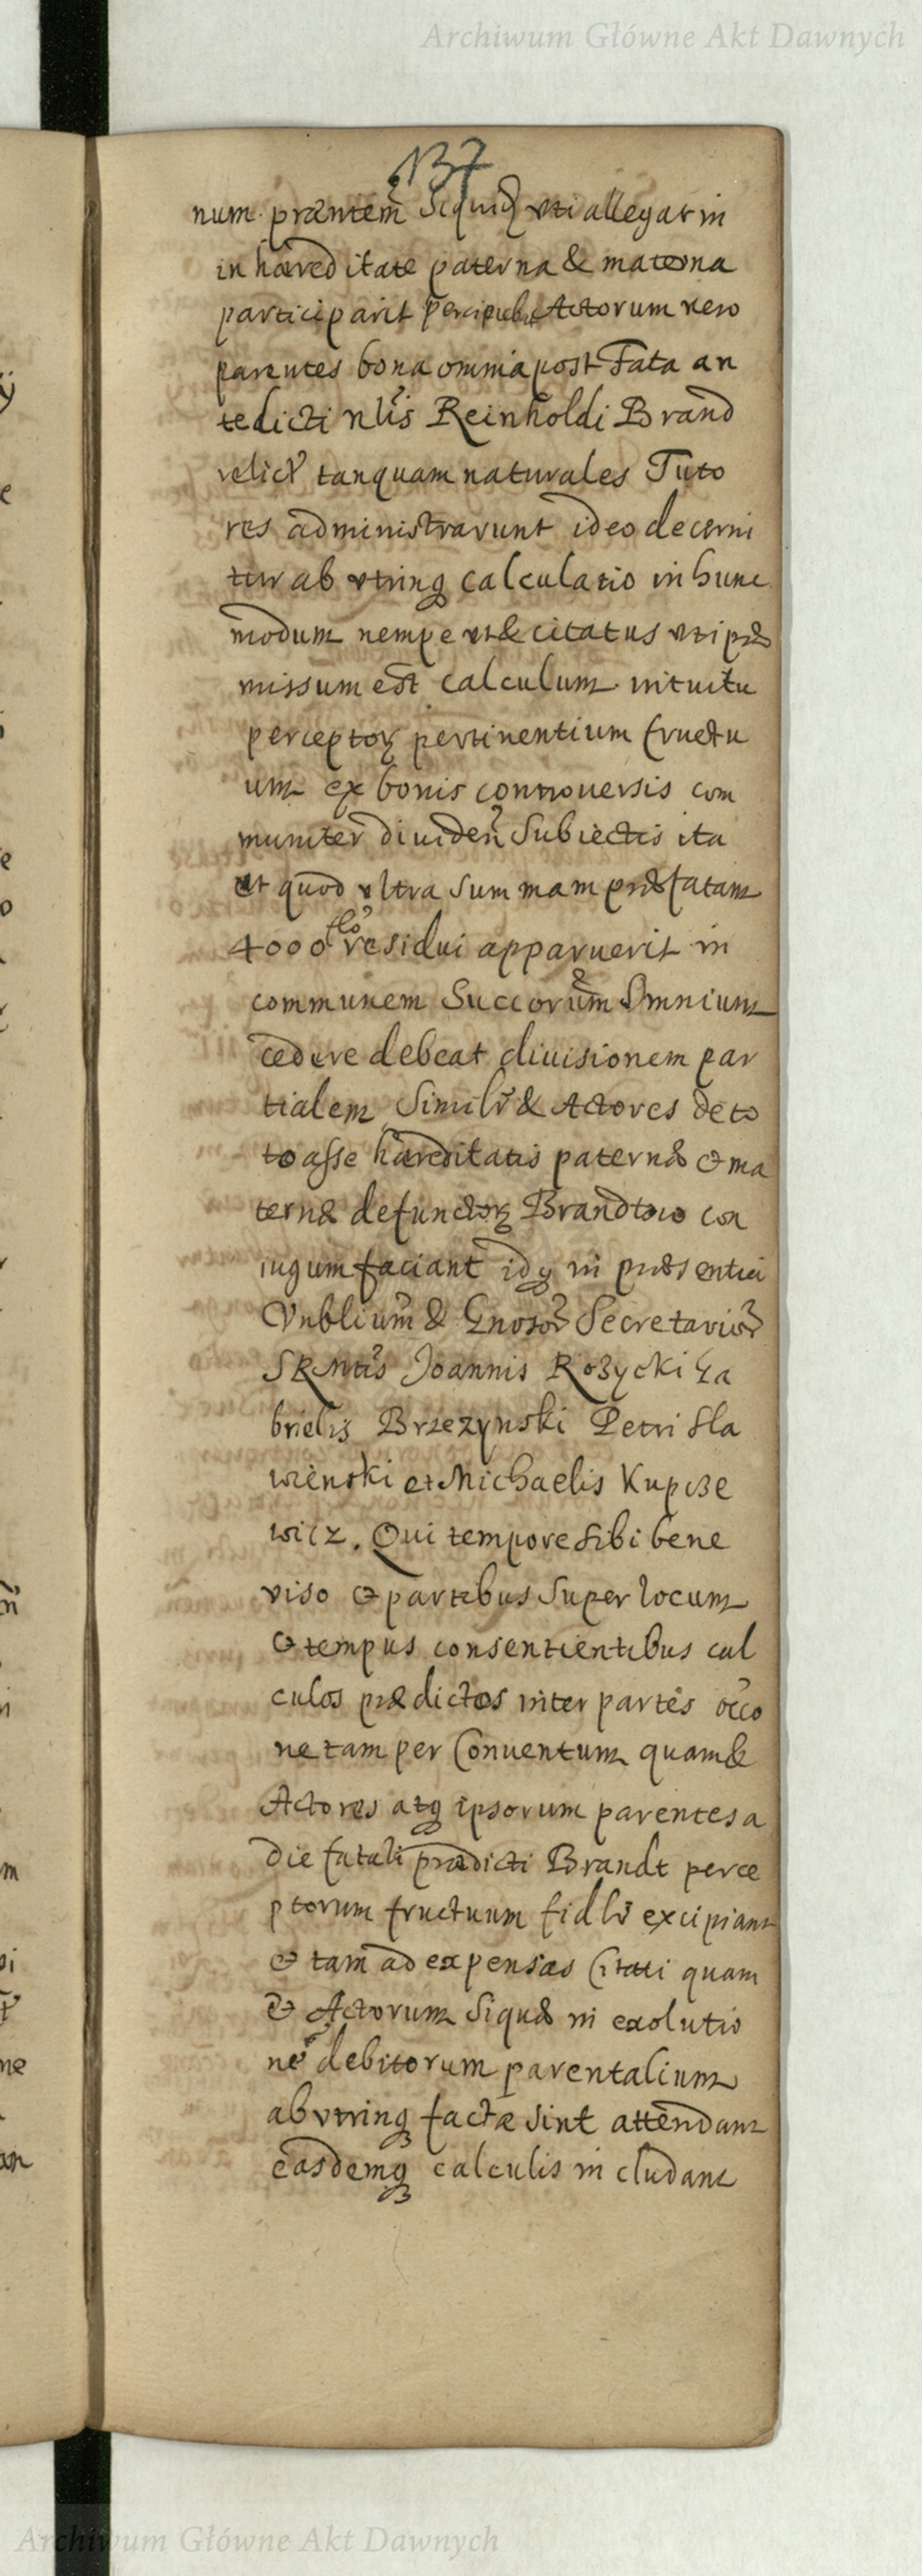 Archiwum Główne Akt Dawnych
137
num præntem̄ Siquid uti allegat in
in hæreditate paterna & materna
participarit Actorum vero
parentes bona omnia post Fata an
tedicti Nlis Reinholdi Brand
relict tanquam naturales Tuto
res administrarunt ideo decerni
tur ab utrinq calculatio in hunc
modum nempe ut & citatus uti præ
missum est calculum intuitu
perceptorꝝ pertinentium fructu
um ex bonis controuersis com
muniter diuiden̄ Subiectis ita
ut quod ultra Summam præfatam
4000 flo residui apparuerit in
communem Succorum Omnium
cedere debeat diuisionem par
tialem Simili & Actores de to
to asse hæreditatis paternæ & ma
ternæ defunctorꝝ Brandtow con
iugum faciant idq in præsentia
Vnblium & Gnosor Secretarior
SRMtis Joannis Rozycki Ga
brielis Brzezynski Petri Sla
wienski et Michaelis Kupcze
wicz. Qui tempore sibi bene
viso & partibus Super locum
& tempus consentientibus cal
culos prædictos inter partes occo
ne tam per Conuentum quam &
Actores atq ipsorum parentes a
die fatali prædicti Brandt perce
ptorum fructuum fidlr excipiant
& tam ad expensas Citati quam
& Actorum Siquæ in exolutio
ne debitorum parentalium
ab utrinq factæ sint attendant
easdemq calculis includant
Archiwum Główne Akt Dawnych